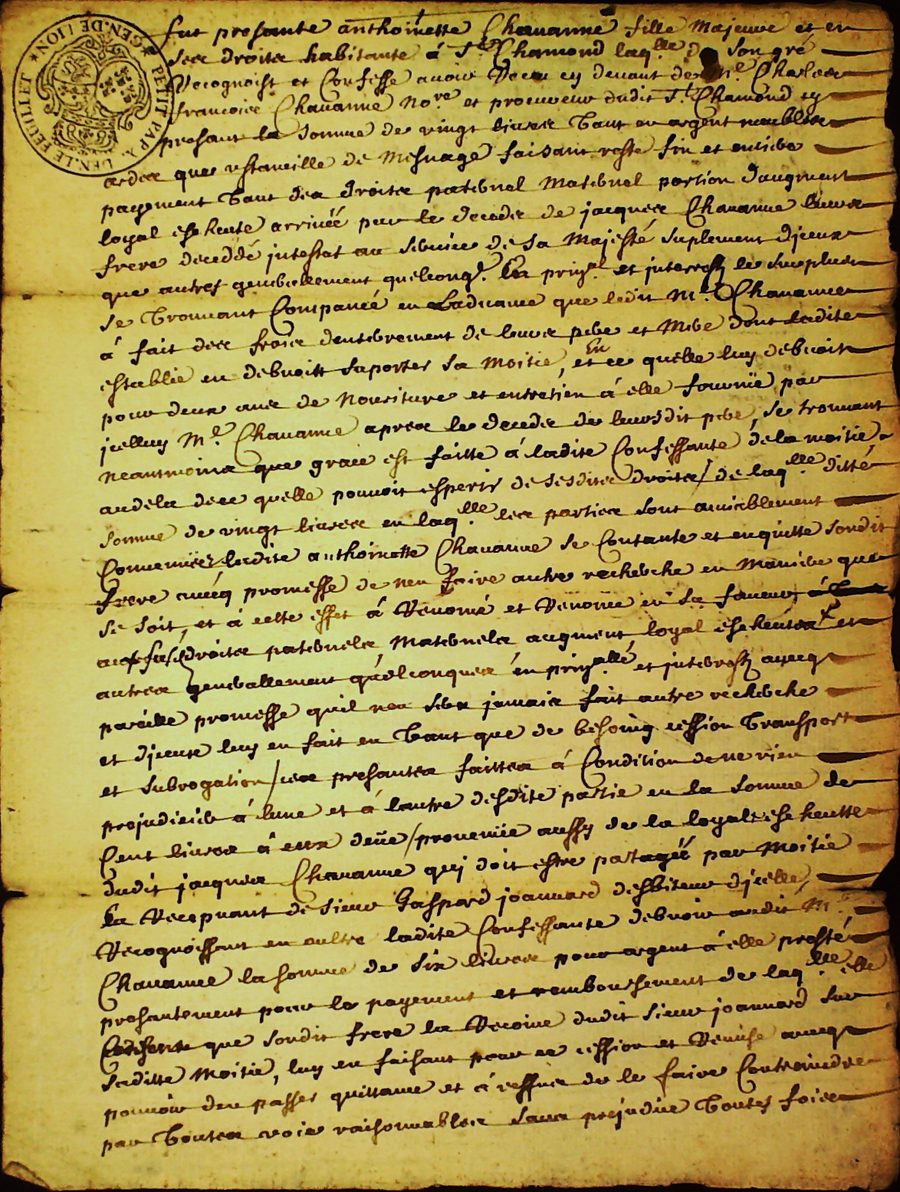 GEN. DE LION * PETIT PAP. X. DEN. LE FEUILLET
fut presante anthoinette Chauanne fille Majeure et en
ses droits habitante à St Chamond laq.lle de son gré
Recognoist et Confesse auoir Receu cy deuant de Me. Charles
francois Chauanne No.re et procureur dudit St. Chamond cy
presant la somme de vingt liures tant en argent meubles
ardes que vstancille de Mesnage faisant reste fin et entier
payement tant des droits paternel Maternel portion d'augment
loyal escheute arriueé par le decedz de jacques Chauanne leur
frere deceddé intestat au seruice de sa Majesté suplement d'jceux
que autres generallement quelconq.s En prin.l et interests le surplus
se trouuant Compancé en Laduance que ledit Me. Chauanne
à fait des frais denterrement de leurs pere et Mere dont ladite
establie en debuoit suporter sa Moitié, et en ce quelle luy debuoit
pour deux ans de Nouriture et entretien à elle fournie par
jcelluy Me. Chauanne apres le decedz de leursdit pere, se trouuant
neantmoins que grace est faitte à ladite Confessante de la moitié
audela de ce quelle pouuoit esperer de sesdites droits / de laq.lle ditte
somme de vingt liures en laq.lle les parties sont amiablement
Conuenues ladite anthoinette Chauanne se Contante et en quitte sondit
frere auecq promesse de n'en faire autre recherche en Maniere que
se soit, et à cette effet à Renoncé et Renonce en sa faueur à
droits paternels Maternels augment loyal escheutes et
autres generallement quelconques en prin.allé et interests auecq
pareille promesse quil n'en sera jamais fait autre recherche
et d'jceux luy en fait en tant que de besoing cession transport
et subrogation / ces presantes faittes à Condition de ne rien
prejudicier à lune et à lautre desdite partie en la somme de
Cent liures à eux deüe / prouenüe aussy de la loyale escheutte
dudit jacques Chauanne quj doit estre partagée par Moitié
En Receuant de sieur Gaspard joannard desbiteur d'jcelle,
Recognoissant en oultre ladite Confessante debuoir audit Me.
Chauanne la somme de six liures pour argent à elle presté
presantement pour le payement et remboursement de laq.lle elle
Consent que sondit frere la Recoiue dudit sieur joannard sur
saditte Moitié, luy en faisant pour ce cession et Remise auecq
pouuoir d'en passer quittance et à deffaut de le faire Contraindre
par toutes voies raisonnables sans prejudice toutes fois